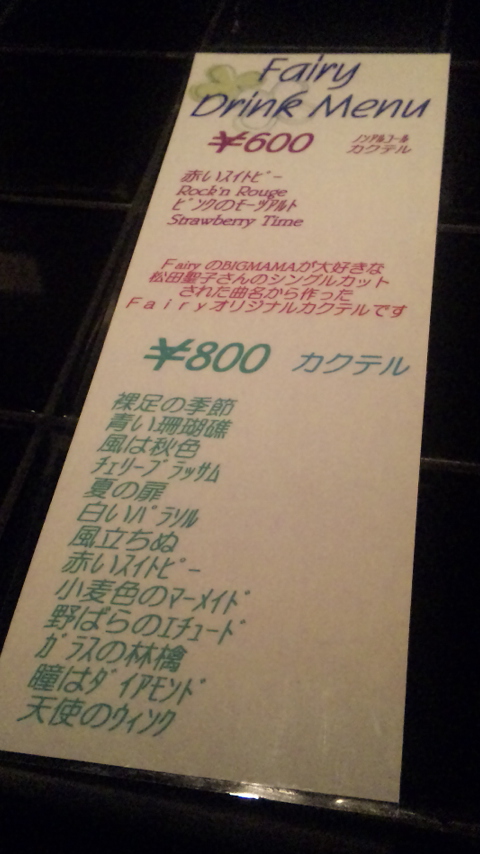 Fairy
Drink Menu
¥600 ﾉﾝｱﾙｺｰﾙ
カクテル
赤いｽｲﾄﾋﾟｰ
Rock'n Rouge
ﾋﾟﾝｸのﾓｰﾂｱﾙﾄ
Strawberry Time
Ｆairy のBIGMAMAが大好きな
松田聖子さんのシングルカット
された曲名から作った
Ｆａｉｒｙオリジナルカクテルです
¥800 カクテル
裸足の季節
青い珊瑚礁
風は秋色
ﾁｪﾘｰﾌﾞﾗｯｻﾑ
夏の扉
白いﾊﾟﾗｿﾙ
風立ちぬ
赤いｽｲﾄﾋﾟｰ
小麦色のﾏｰﾒｲﾄﾞ
野ばらのｴﾁｭｰﾄﾞ
ｶﾞﾗｽの林檎
瞳はﾀﾞｲｱﾓﾝﾄﾞ
天使のｳｨﾝｸ